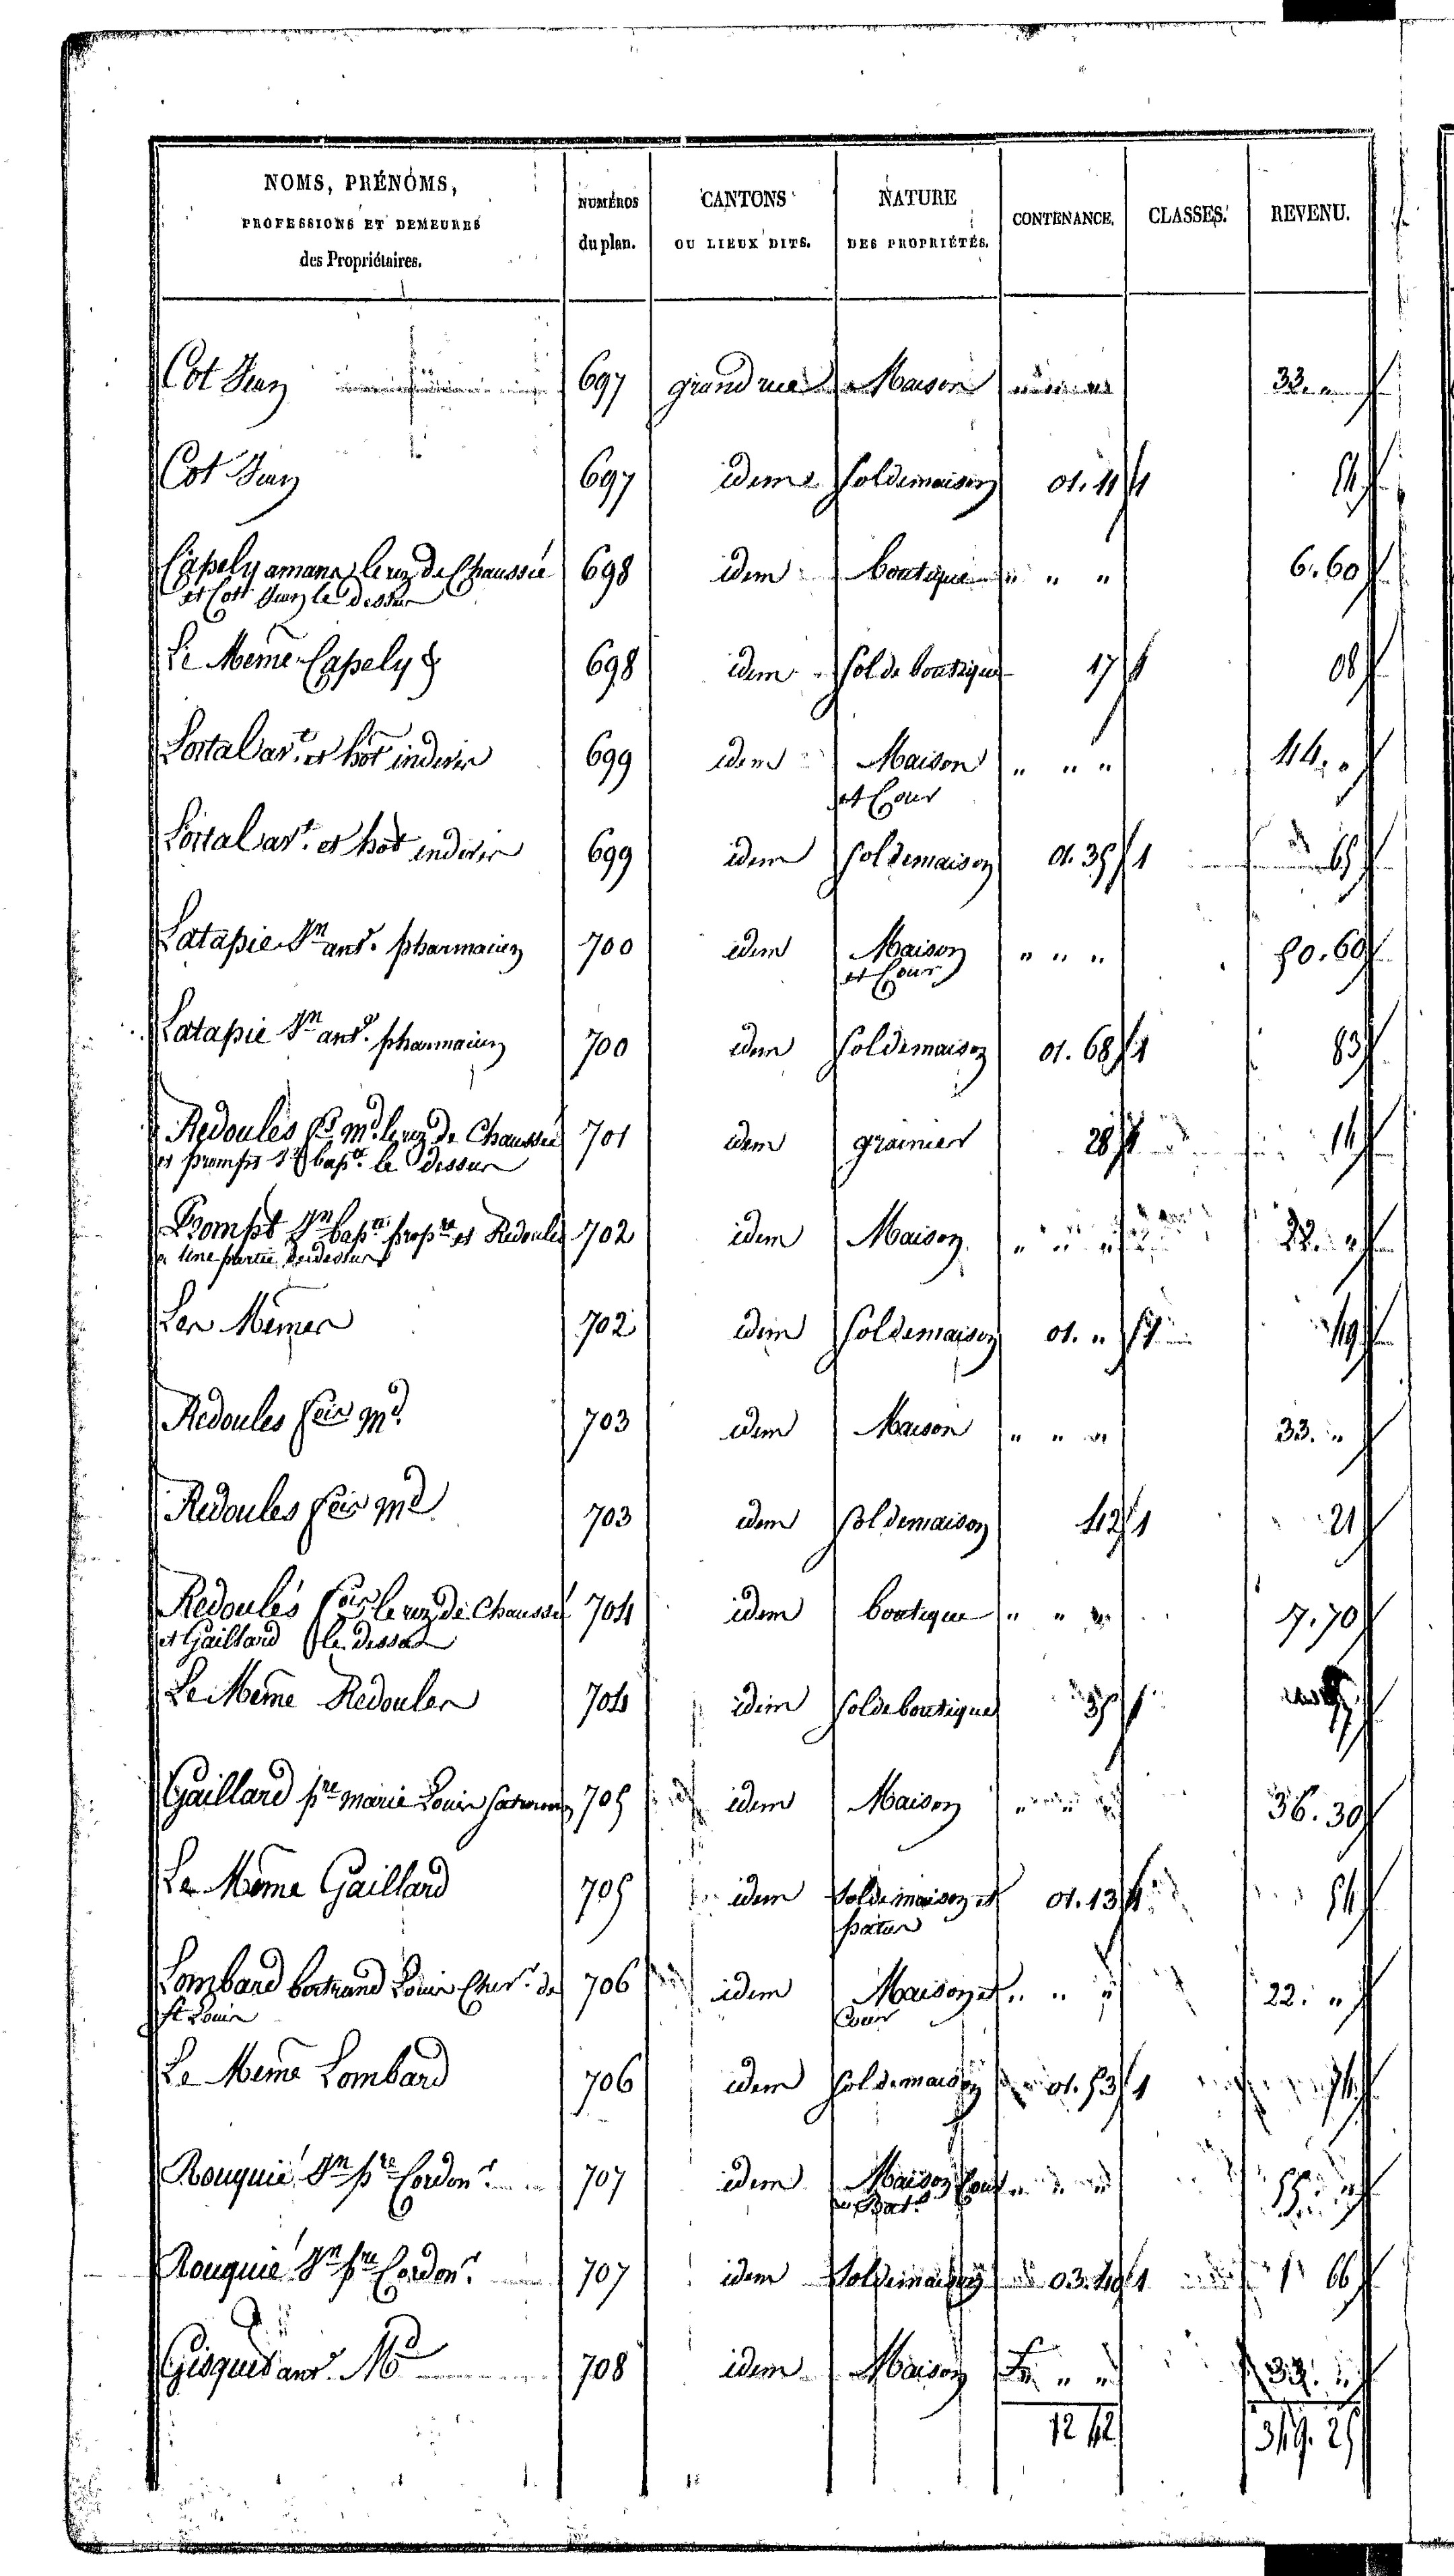 NOMS, PRÉNOMS,
PROFESSIONS ET DEMEURES
des Propriétaires.
NUMÉROS
du plan.
CANTONS
OU LIEUX DITS.
NATURE
DES PROPRIÉTÉS.
CONTENANCE.
CLASSES.
REVENU.
Cot Jean 697 grand rue Maison " " " 33. "
Cot Jean 697 idem Sol de maison 01. 11 1 54
Capely amans le rez de Chaussée 698 idem boutique " " " 6. 60
et Cot Jean le dessus
Le Meme Capely 698 idem Sol de boutique 17 1 08
Lortal art. et 699 idem Maison " " " 44. "
et Cour
Lortal art. et 699 idem Sol de maison 01. 35 1 65
Latapie Jn ant. pharmacien 700 idem Maison " " " 50. 60
et Cour
Latapie Jn ant. pharmacien 700 idem Sol de maison 01. 68 1 83
Redoulès md le rez de Chaussée 701 idem grainier 28 1 14
et prompt Jn bapte le dessus
Prompt Jn bapte propre et Redoules 702 idem Maison " " " 22. "
a une partie du dessus
Les Mêmes 702 idem Sol de maison 01. " 1 49
Redoules fois md 703 idem Maison " " " 33. "
Redoules fois md 703 idem Sol de maison 42 1 21
Redoulès fois le rez de Chaussée 704 idem boutique " " " 7. 70
et Gaillard le dessus
Le Même Redoules 704 idem Sol de boutique 35 1
Gaillard pre marie Louis 705 idem Maison " " " 36. 30
Le Même Gaillard 705 idem Sol de maison et 01. 13 1 54
patus
Lombard bertrand Louis Cher. de 706 idem Maison et " " " 22. "
St Louis Cour
Le Même Lombard 706 idem Sol de maison 01. 53 1 74
Rouquié Jn pre Cordonr 707 idem Maison Cour " " " 55. "
et Bat.
Rouquié Jn pre Cordonr 707 idem Sol de maison 03. 40 1 1 66
Gisquet ant. Md 708 idem Maison " " 33. "
12 42 349. 25